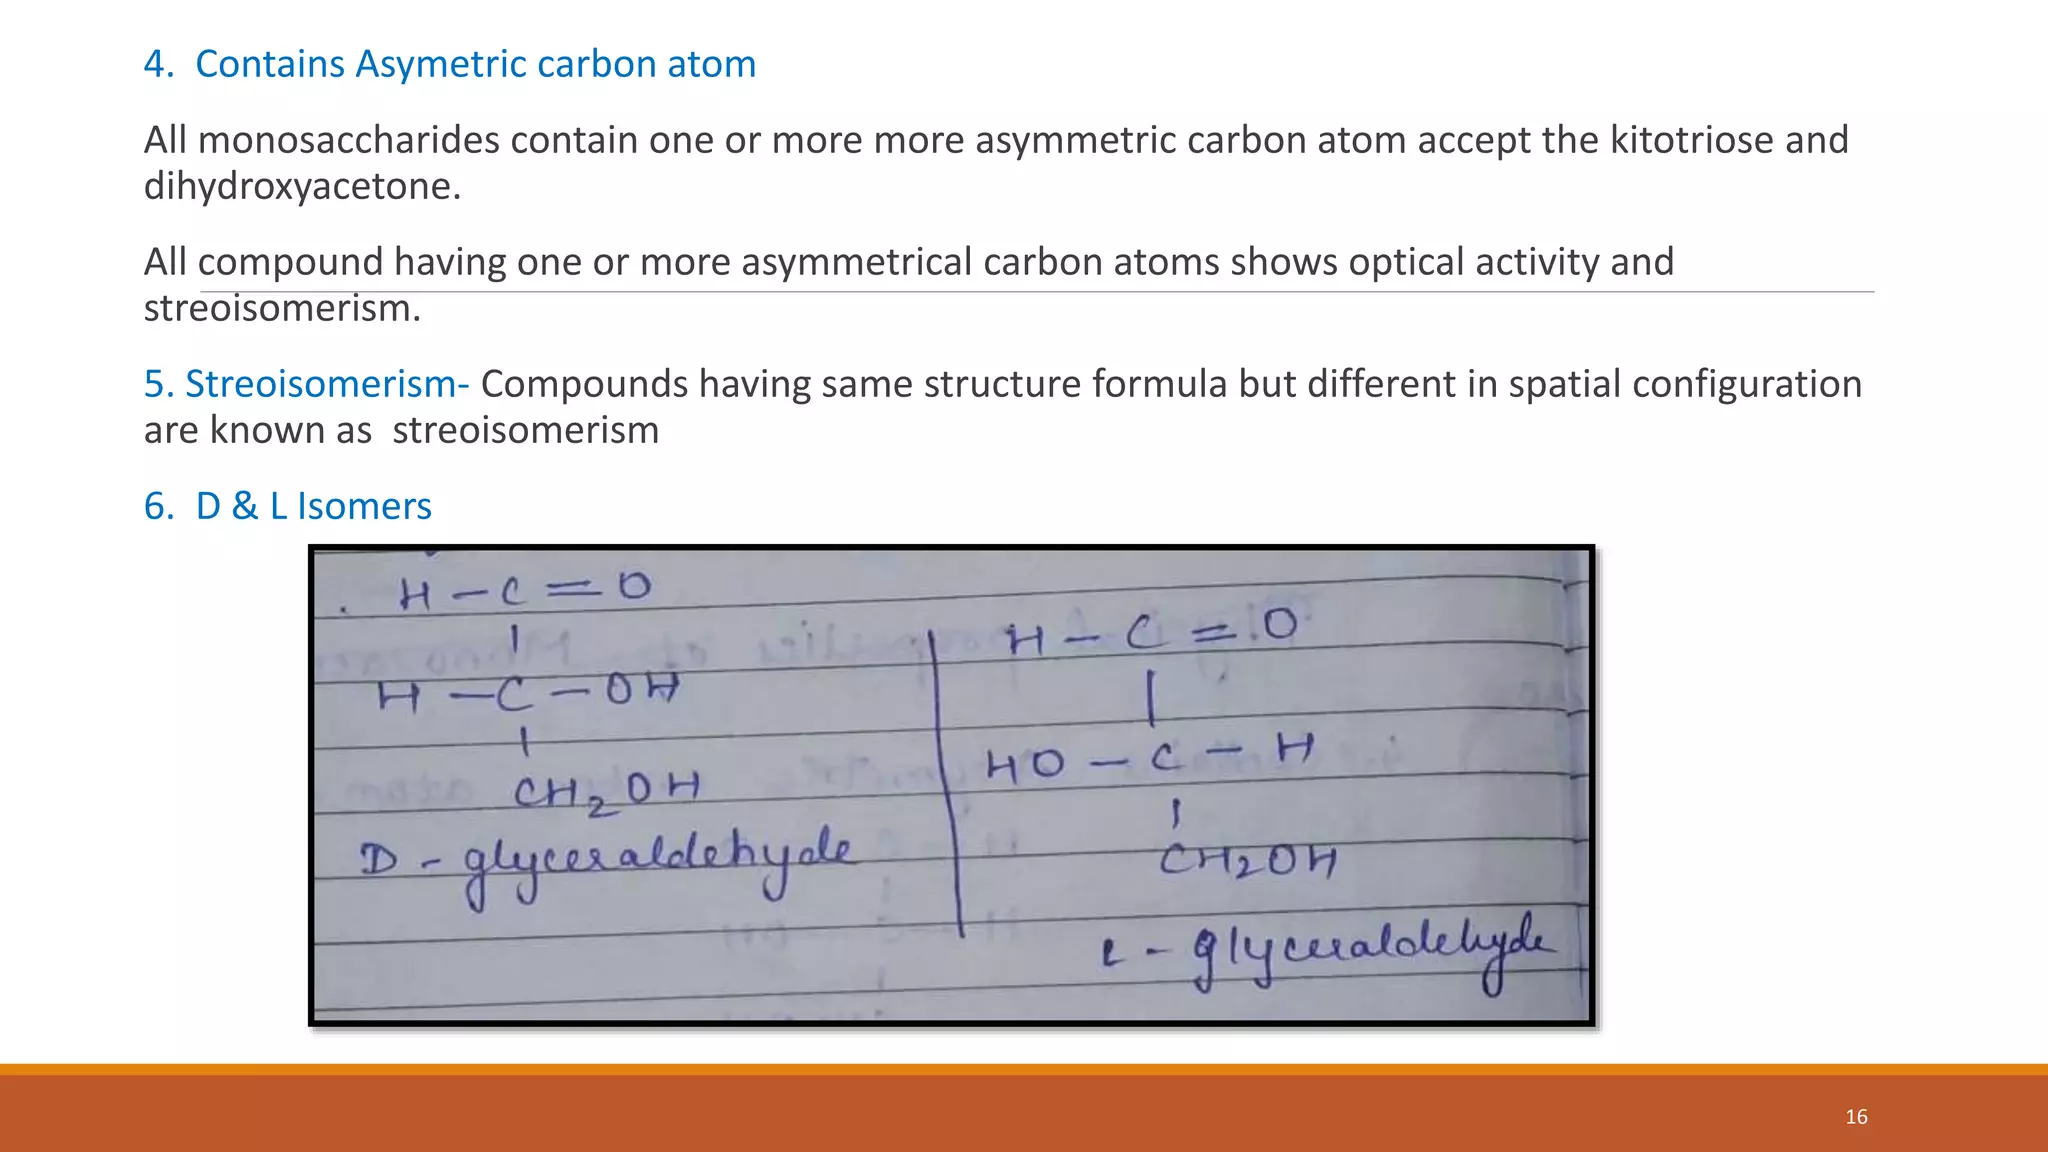 4. Contains Asymetric carbon atom
All monosaccharides contain one or more more asymmetric carbon atom accept the kitotriose and
dihydroxyacetone.
All compound having one or more asymmetrical carbon atoms shows optical activity and
streoisomerism.
5. Streoisomerism- Compounds having same structure formula but different in spatial configuration
are known as streoisomerism
6. D & L Isomers
H - C = O
H - C - OH
CH2OH
D - glyceraldehyde
H - C = O
HO - C - H
CH2OH
L - glyceraldehyde
16